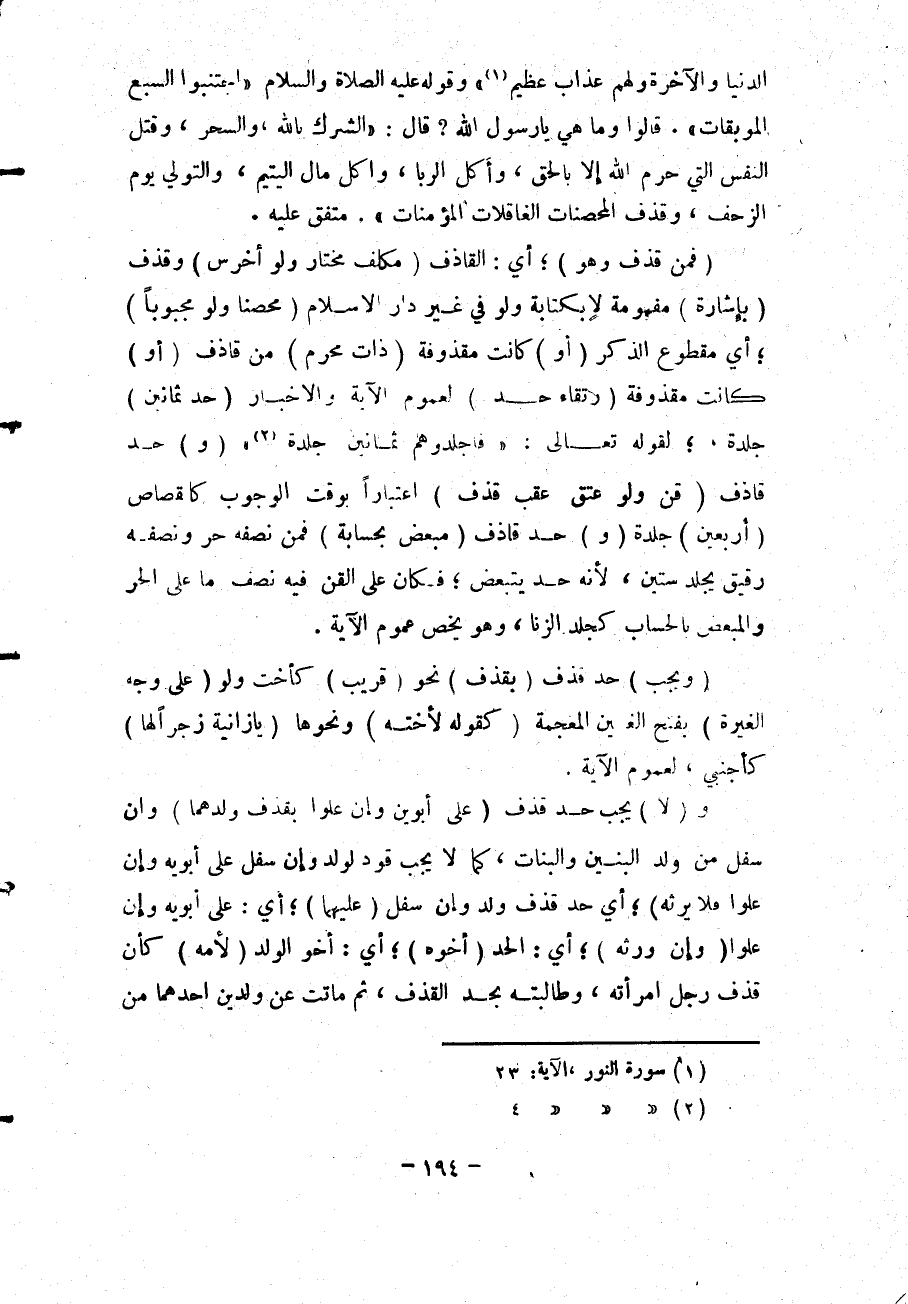 الدنيا والآخرة ولهم عذاب عظيم (١)» وقوله عليه الصلاة والسلام «اجتنبوا السبع
الموبقات» . قالوا وما هي يارسول الله ? قال : «الشرك بالله ، والسحر ، وقتل
النفس التي حرم الله إلا بالحق ، وأكل الربا ، واكل مال اليتيم ، والتولي يوم
الزحف ، وقذف المحصنات الغافلات المؤمنات » . متفق عليه .
( فمن قذف وهو ) ؛ أي : القاذف ( مكلف مختار ولو أخرس ) وقذف
( بإشارة ) مفهومة لا بكتابة ولو في غير دار الاسلام ( محصنا ولو مجبوباً )
؛ أي مقطوع الذكر ( أو ) كانت مقذوفة ( ذات محرم ) من قاذف ( أو )
كانت مقذوفة ( رتقاء حد ) لعموم الآية والاخبار ( حد ثمانين )
جلدة ؛ لقوله تعالى : « فاجلدوهم ثمانين جلدة (٢)» ( و ) حد
قاذف ( قن ولو عتق عقب قذف ) اعتباراً بوقت الوجوب كالقصاص
( أربعين ) جلدة ( و ) حد قاذف ( مبعض بحسابة ) فمن نصفه حر ونصفه
رقيق يجلد ستين ، لأنه حد يتبعض ؛ فكان على القن فيه نصف ما على الحر
والمبعض بالحساب كجلد الزنا ، وهو يخص عموم الآية .
( ويجب ) حد قذف ( بقذف ) نحو ( قريب ) كأخت ولو ( على وجه
الغيرة ) بفتح الغين المعجمة ( كقوله لأخته ) ونحوها ( يازانية زجراً لها )
كأجنبي ، لعموم الآية .
و ( لا ) يجب حد قذف ( على أبوين وإن علوا بقذف ولدهما ) وان
سفل من ولد البنين والبنات ، كما لا يجب قود لولد وإن سفل على أبويه وإن
علوا فلا يرثه ) ؛ أي حد قذف ولد وان سفل ( عليهما ) ؛ أي : على أبويه وإن
علوا ( وإن ورثه ) ؛ أي : الحد ( أخوه ) ؛ أي : أخو الولد ( لأمه ) كأن
قذف رجل امرأته ، وطالبته بحد القذف ، ثم ماتت عن ولدين احدهما من
(١) سورة النور ،الآية: ٢٣
(٢) » » » ٤
- ١٩٤ -